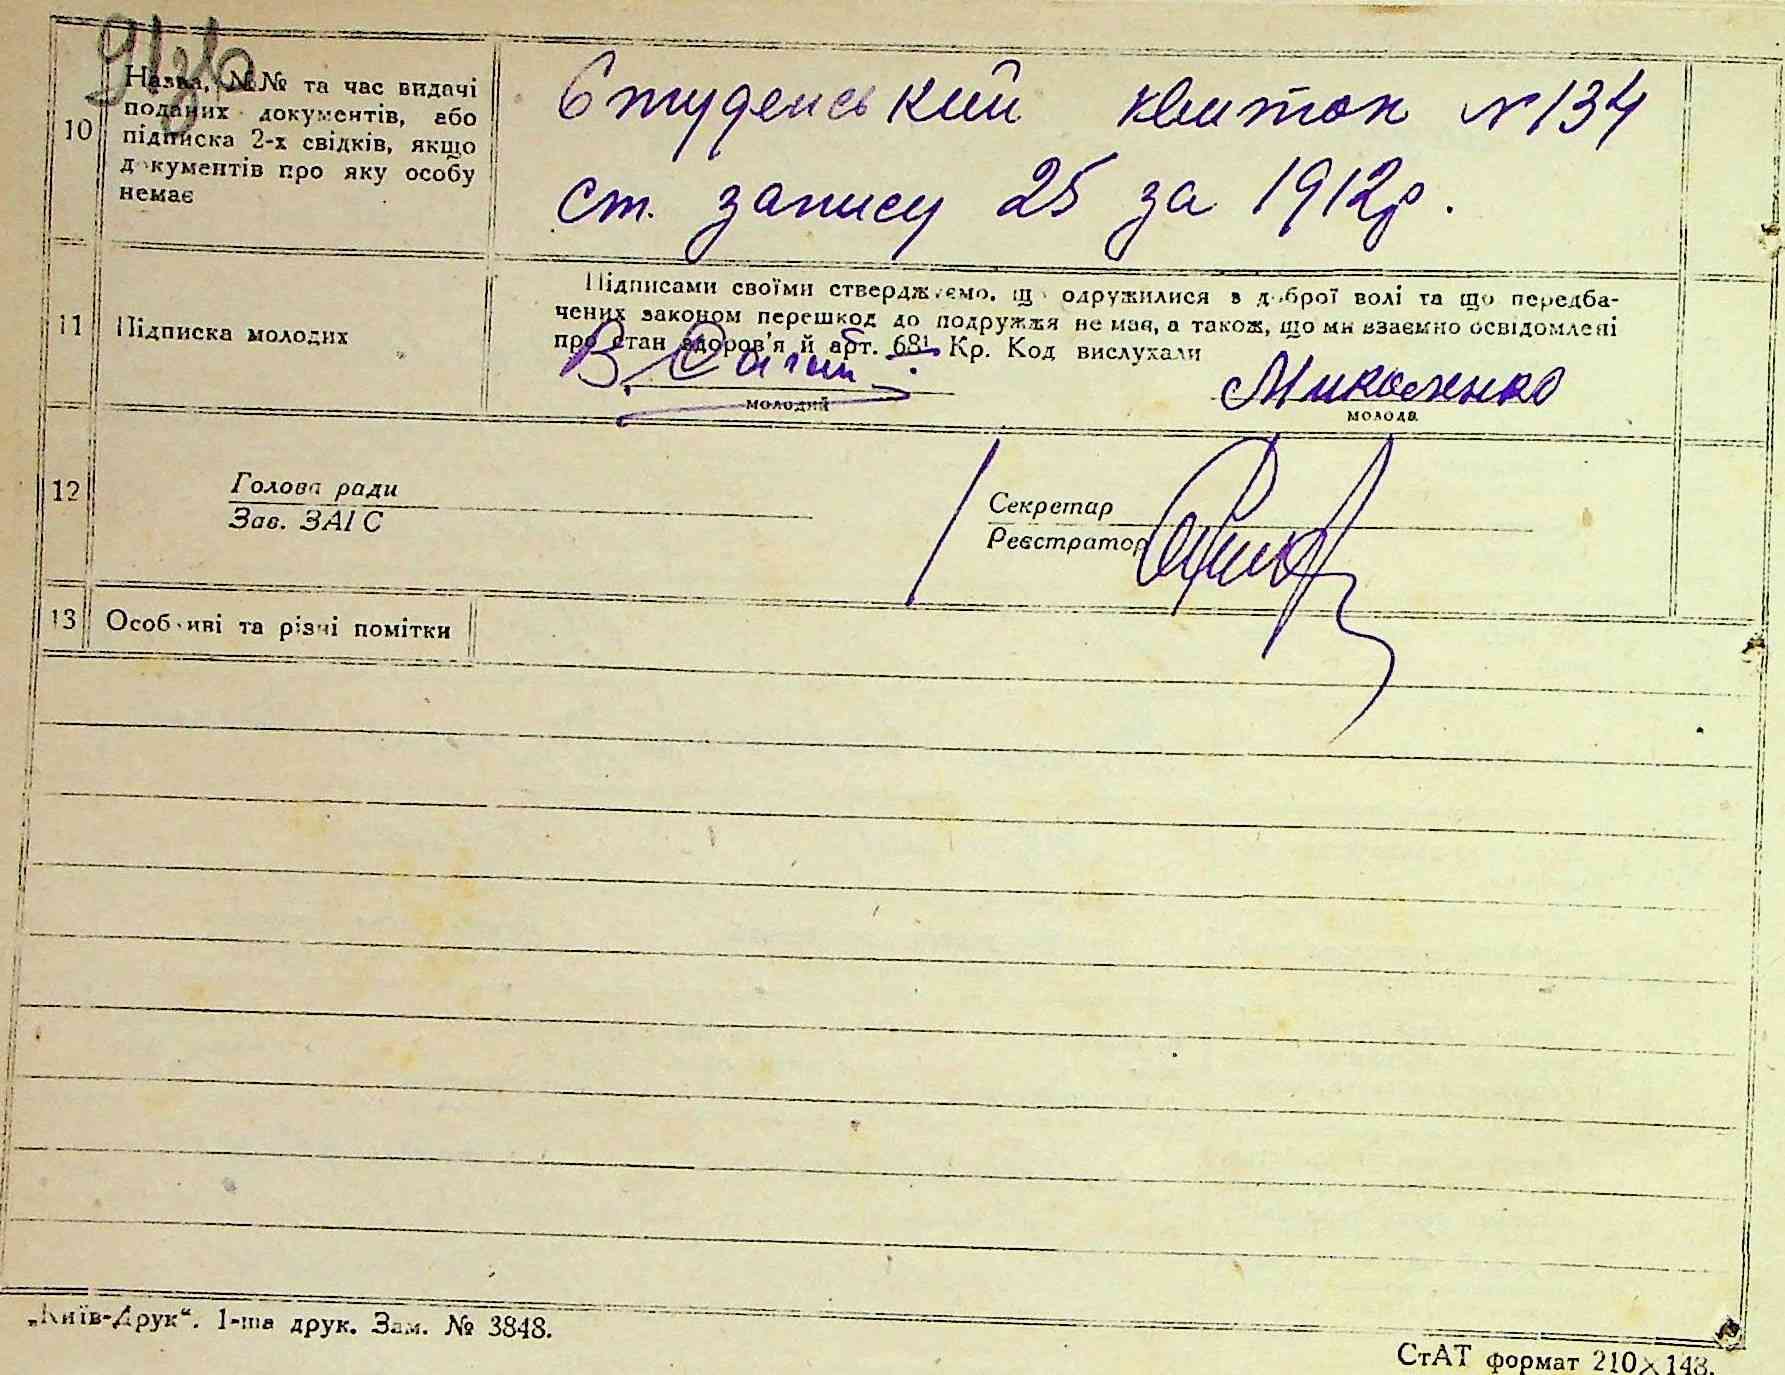 10 Назва, №№ та час видачі
поданих документів, або
підписка 2-х свідків, якщо
документів про яку особу
немає
Студенський квиток № 134
ст. запису 25 за 1912р.
11 Підписка молодих
Підписами своїми стверджуємо, що одружилися з доброї волі та що передба-
чених законом перешкод до подружжя не має, а також, що ми взаємно освідомлені
про стан здоров'я й арт. 681 Кр. Код вислухали
В.
Миколенко
молодий
молода
12 Голова ради
Зав. ЗАГС
Секретар
Реєстратор
13 Особливі та різні помітки
„Київ-Друк“. 1-ша друк. Зам. № 3848.
СтАТ формат 210×148.